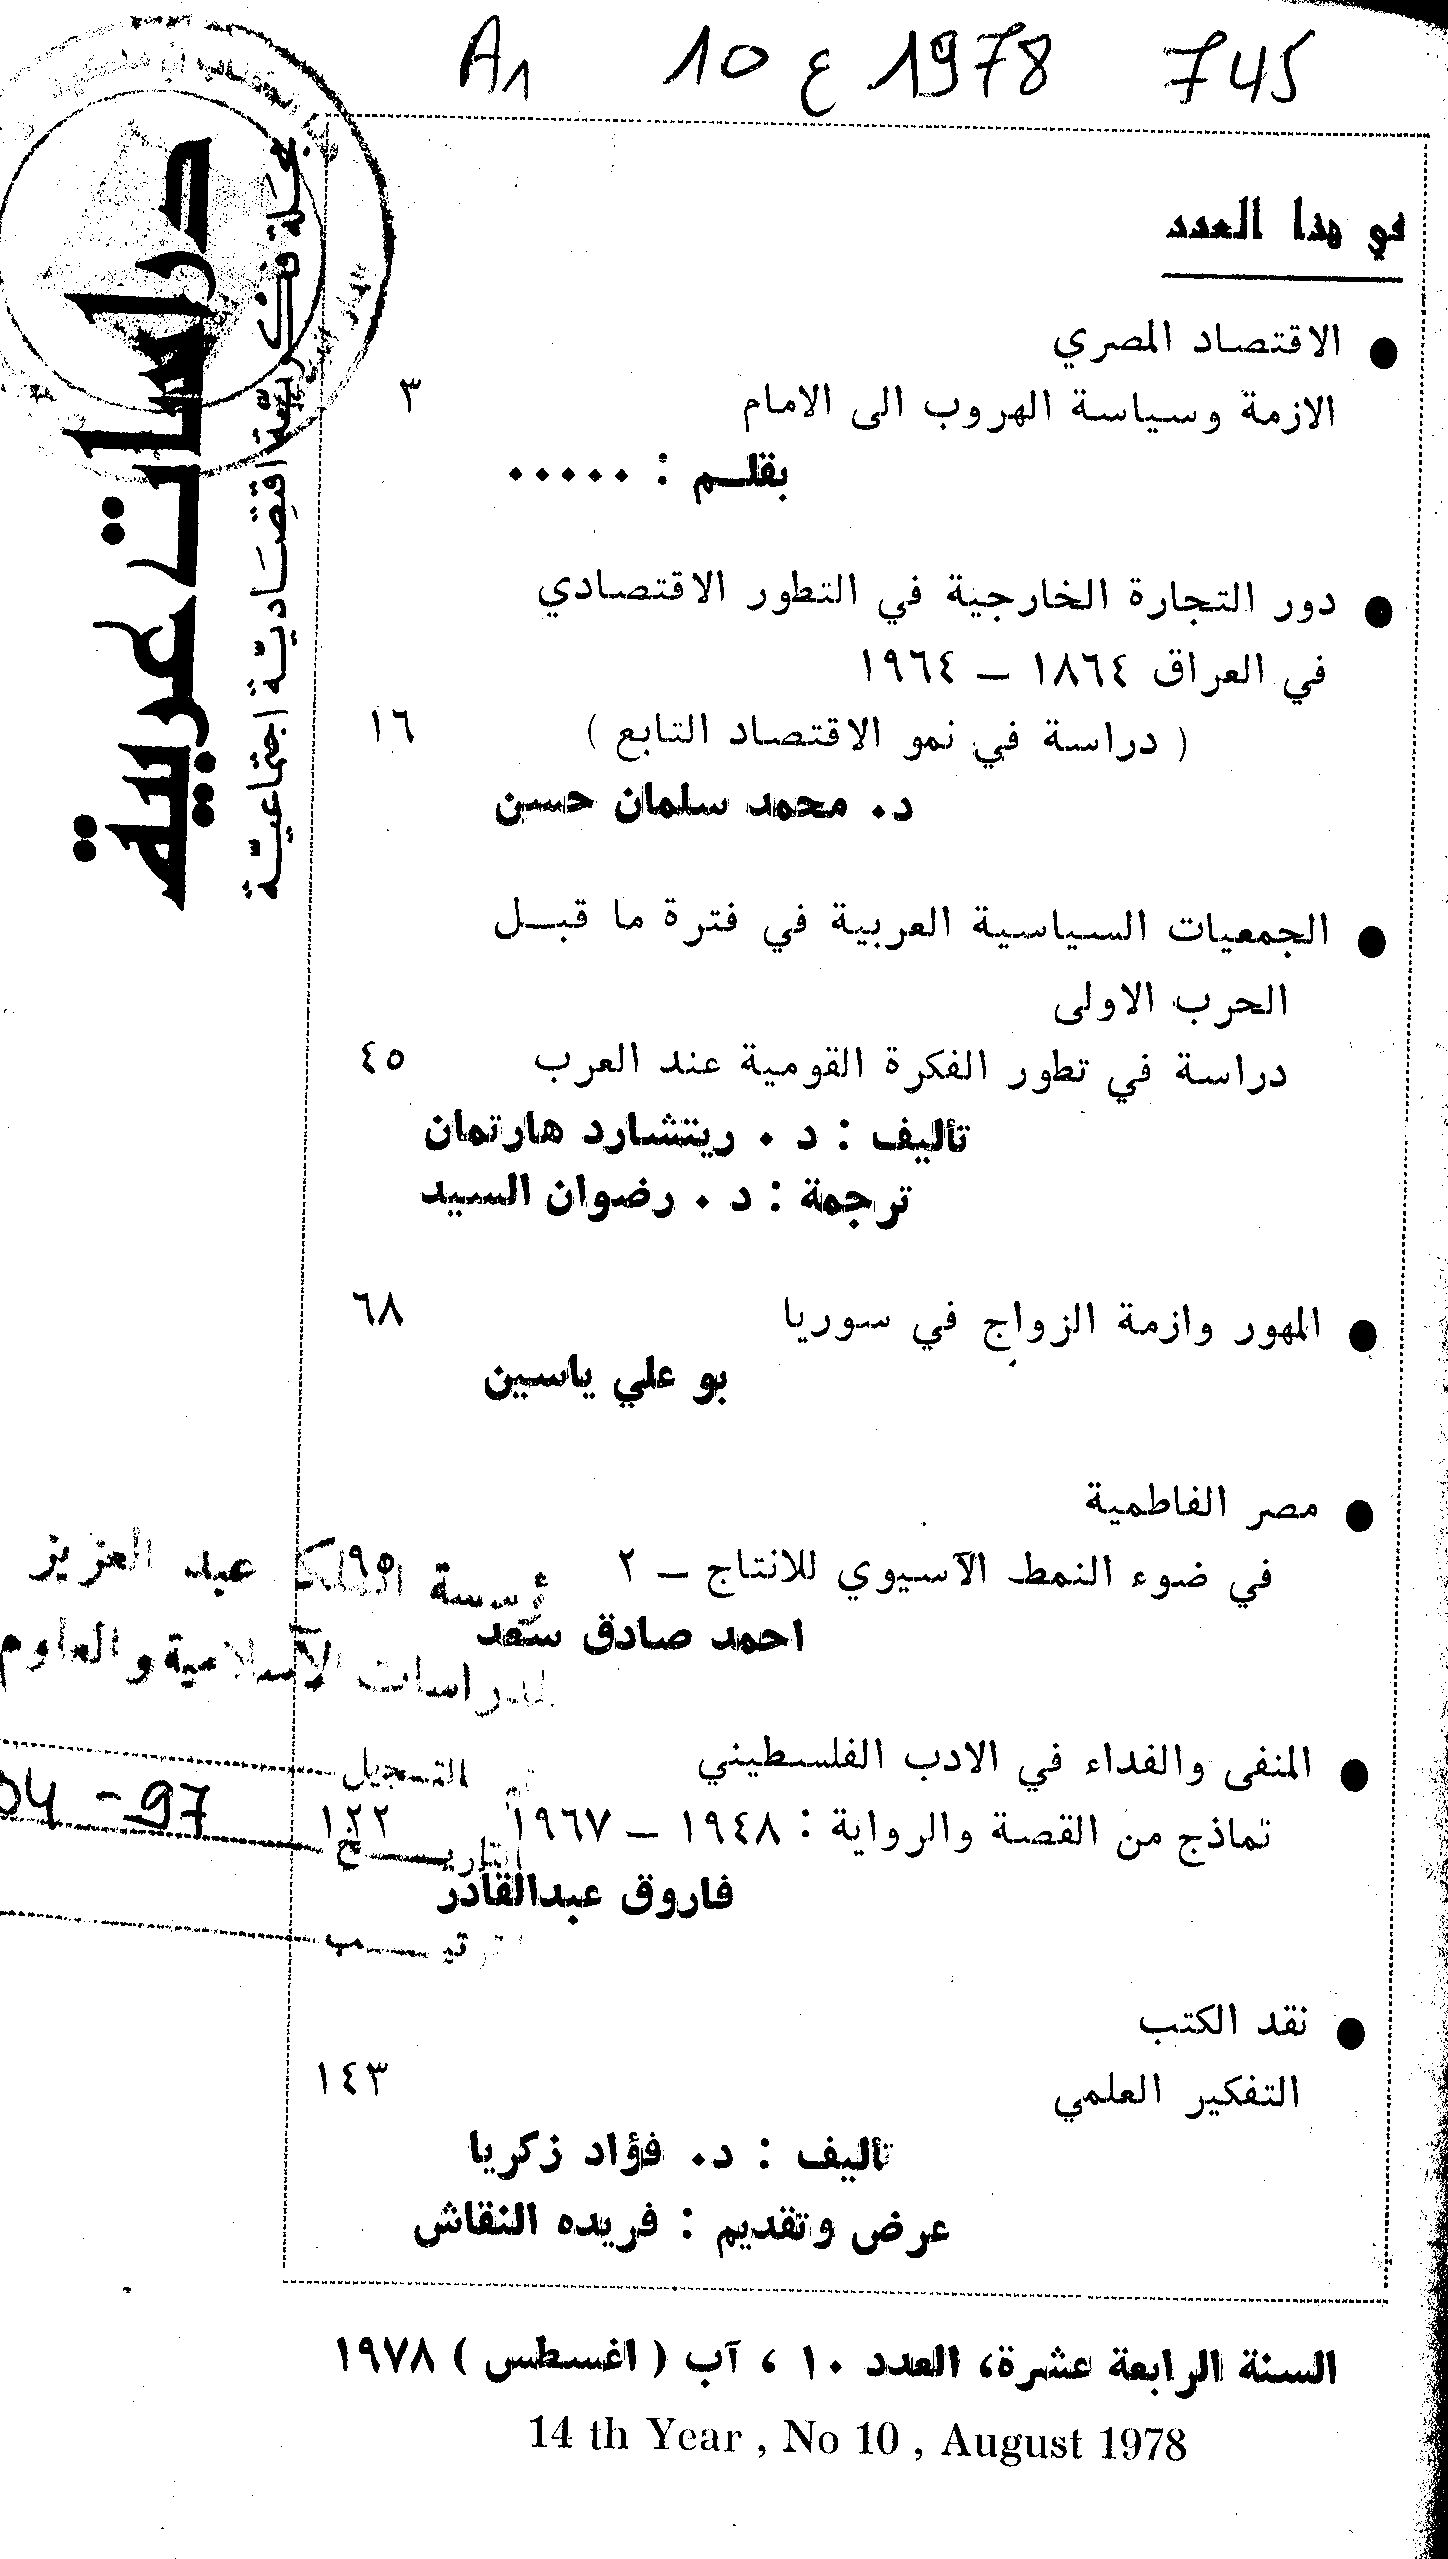 A1 10 ع 1978 745
دراسات عربية
مجلة فكرية اقتصادية اجتماعية
في هذا العدد
● الاقتصاد المصري
الازمة وسياسة الهروب الى الامام ٣
بقلـم : ٠٠٠٠٠
● دور التجارة الخارجية في التطور الاقتصادي
في العراق ١٨٦٤ – ١٩٦٤
( دراسة في نمو الاقتصاد التابع ) ١٦
د. محمد سلمان حسن
● الجمعيات السياسية العربية في فترة ما قبـل
الحرب الاولى
دراسة في تطور الفكرة القومية عند العرب ٤٥
تأليف : د . ريتشارد هارتمان
ترجمة : د . رضوان السيد
● المهور وازمة الزواج في سوريا ٦٨
بو علي ياسين
● مصر الفاطمية
في ضوء النمط الآسيوي للانتاج – ٢ ٩٥
احمد صادق سعد
مؤسسة الملك عبد العزيز
للدراسات الاسلامية والعلوم
● المنفى والفداء في الادب الفلسطيني
نماذج من القصة والرواية : ١٩٤٨ – ١٩٦٧ ١٢٢
فاروق عبدالقادر
التسجيل
04 - 97
التاريـــخ
● نقد الكتب
التفكير العلمي ١٤٣
تأليف : د. فؤاد زكريا
عرض وتقديم : فريده النقاش
السنة الرابعة عشرة، العدد ١٠ ، آب ( اغسطس ) ١٩٧٨
14 th Year , No 10 , August 1978